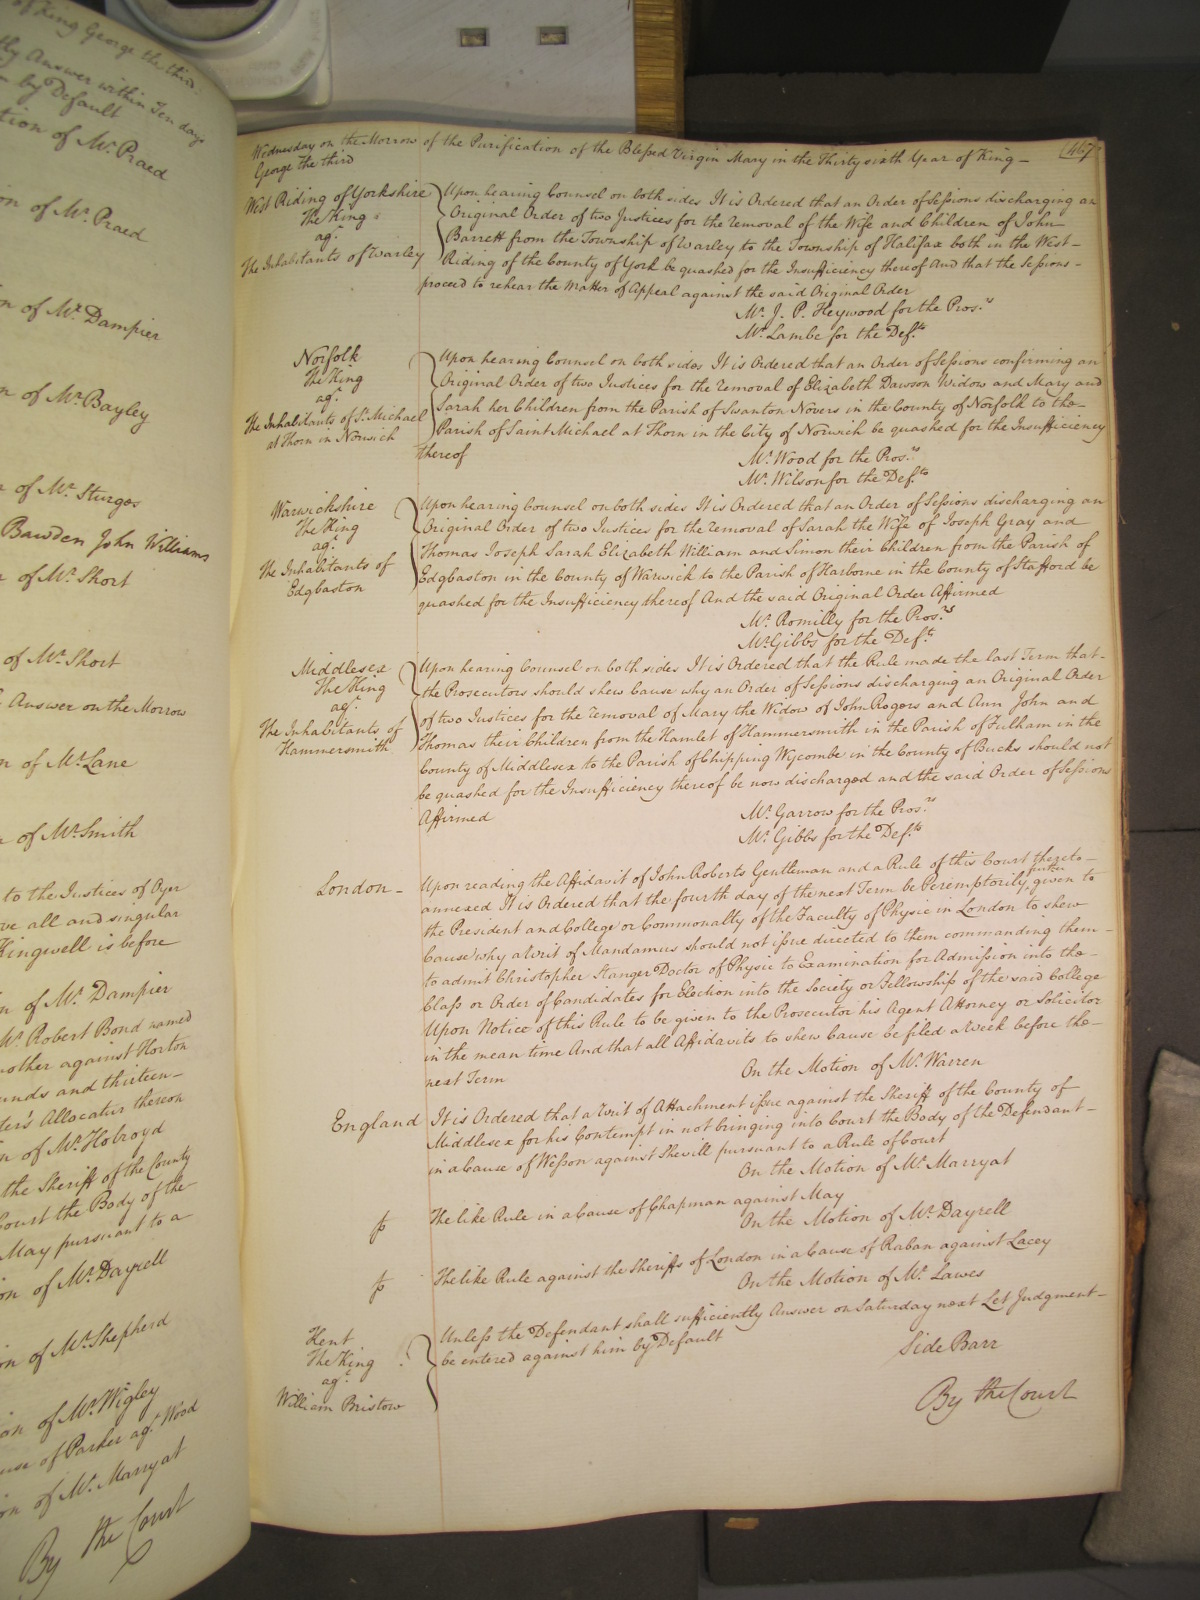 of King George the third.
tly Answer within Ten days
by Default
tion of Mr. Praed
on of Mr. Praed
n of Mr. Dampier
n of Mr. Bayley
of Mr. Sturges
Bawden John Williams
of Mr. Short
of Mr. Short
Answer on the Morrow
n of Mr. Lane
of Mr. Smith
to the Justices of Oyer
ve all and singular
Kingwell is before
n of Mr. Dampier
Wm. Robert Bond named
nother against Horton
unds and thirteen-
ter's Allocatur thereon
n of Mr. Holroyd
the Sheriff of the County
Court the Body of the
May pursuant to a
on of Mr. Dayrell
on of Mr. Shepherd
on of Mr. Wigley
use of Parker agt. Wood
on of Mr. Marryat
By the Court
Wednesday on the Morrow of the Purification of the Blessed Virgin Mary in the Thirty sixth Year of King- 467
George the third
West Riding of Yorkshire
The King
agt.
The Inhabitants of Warley
Upon hearing Counsel on both sides It is Ordered that an Order of Sessions discharging an
Original Order of two Justices for the removal of the Wife and Children of John
Barrett from the Township of Warley to the Township of Halifax both in the West-
Riding of the County of York be quashed for the Insufficiency thereof And that the Sessions-
proceed to rehear the Matter of Appeal against the said Original Order
Mr. J. P. Heywood for the Pros.rs
Mr. Lambe for the Def.ts
Norfolk
The King
agt.
The Inhabitants of St. Michael
at Thorn in Norwich
Upon hearing Counsel on both sides It is Ordered that an Order of Sessions confirming an
Original Order of two Justices for the removal of Elizabeth Dawson Widow and Mary and
Sarah her Children from the Parish of Swanton Novers in the County of Norfolk to the-
Parish of Saint Michael at Thorn in the City of Norwich be quashed for the Insufficiency
thereof
Mr. Wood for the Pros.rs
Mr. Wilson for the Def.ts
Warwickshire
The King
agt.
The Inhabitants of
Edgbaston
Upon hearing Counsel on both sides It is Ordered that an Order of Sessions discharging an
Original Order of two Justices for the removal of Sarah the Wife of Joseph Gray and
Thomas Joseph Sarah Elizabeth William and Simon their Children from the Parish of
Edgbaston in the County of Warwick to the Parish of Harborne in the County of Stafford be
quashed for the Insufficiency thereof And the said Original Order Affirmed
Mr. Romilly for the Pros.rs
Mr. Gibbs for the Def.ts
Middlesex
The King
agt.
The Inhabitants of
Hammersmith
Upon hearing Counsel on both sides It is Ordered that the Rule made the last Term that-
the Prosecutors should shew Cause why an Order of Sessions discharging an Original Order
of two Justices for the removal of Mary the Widow of John Rogers and Ann John and
Thomas their Children from the Hamlet of Hammersmith in the Parish of Fulham in the
County of Middlesex to the Parish of Chipping Wycombe in the County of Bucks should not
be quashed for the Insufficiency thereof be now discharged and the said Order of Sessions
Affirmed
Mr. Garrow for the Pros.rs
Mr. Gibbs for the Def.ts
London-
Upon reading the Affidavit of John Roberts Gentleman and a Rule of this Court thereto-
annexed It is Ordered that the fourth day of the next Term be Peremptorily further given to
the President and College or Commonalty of the Faculty of Physic in London to shew
Cause why a Writ of Mandamus should not issue directed to them commanding them-
to admit Christopher Stanger Doctor of Physic to Examination for Admission into the-
Class or Order of Candidates for Election into the Society or Fellowship of the said College
Upon Notice of this Rule to be given to the Prosecutor his Agent Attorney or Solicitor
in the mean time And that all Affidavits to shew Cause be filed a Week before the-
next Term
On the Motion of Mr. Warren
England
It is Ordered that a Writ of Attachment issue against the Sheriff of the County of
Middlesex for his Contempt in not bringing into Court the Body of the Defendant-
in a Cause of Wesson against Shevill pursuant to a Rule of Court
On the Motion of Mr. Marryat
The like Rule in a Cause of Chapman against May
On the Motion of Mr. Dayrell
The like Rule against the Sheriffs of London in a Cause of Raban against Lacey
On the Motion of Mr. Lawes
Kent
The King
agt.
William Bristow
Unless the Defendant shall sufficiently Answer on Saturday next Let Judgment-
be entered against him by Default
Side Barr
By the Court